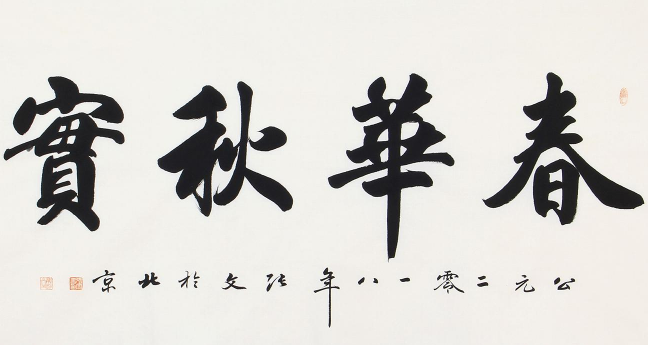 春華秋實
公元二零一八年張文於北京